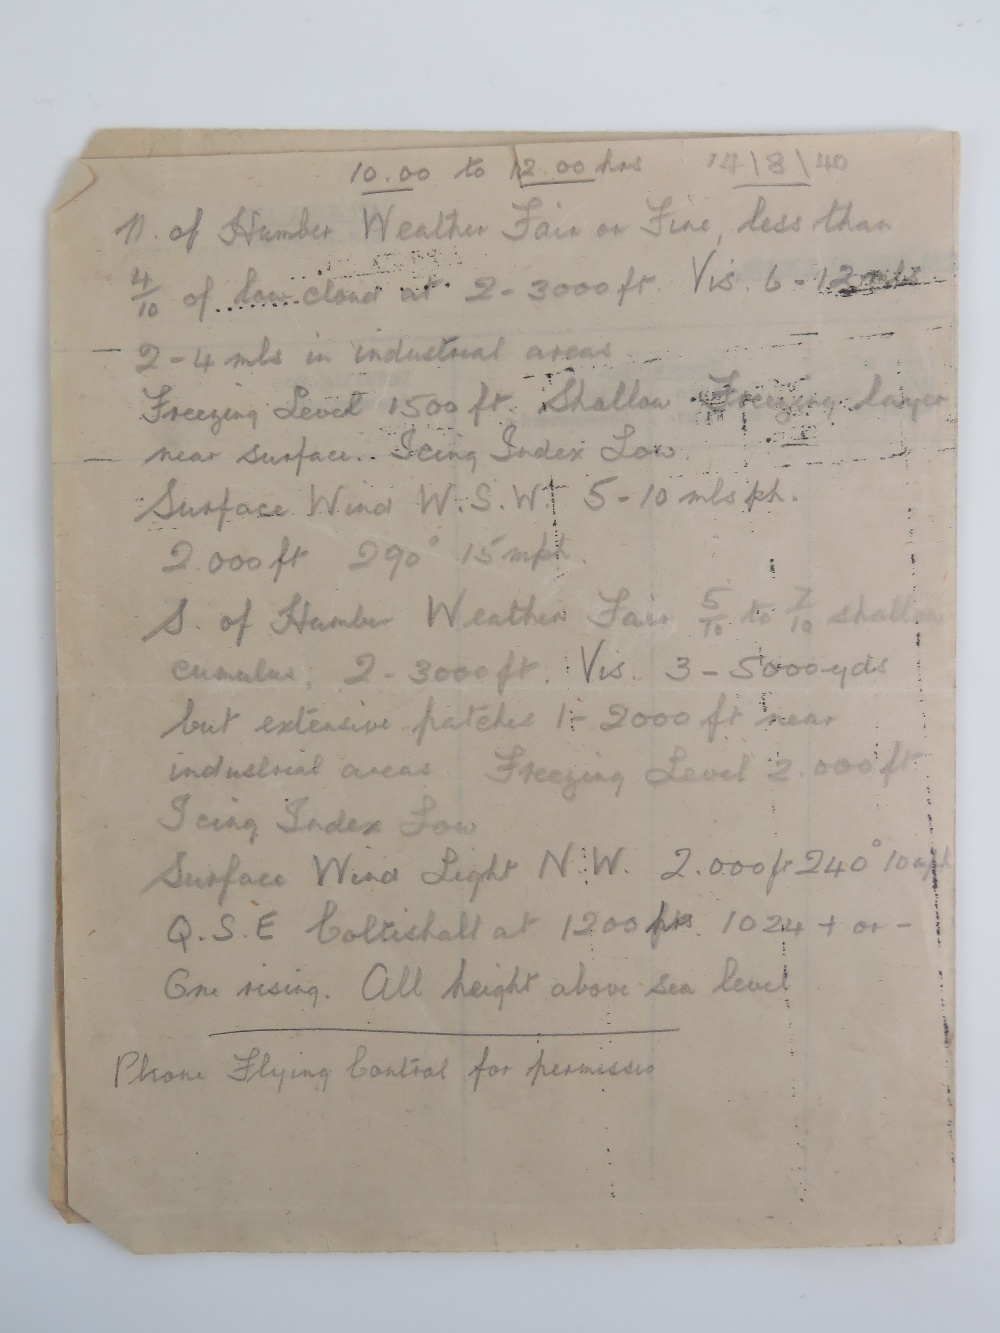 10.00 to 12.00 hrs 14/8/40
N. of Humber Weather Fair or Fine, less than
4/10 of low cloud at 2-3000 ft. Vis. 6-12 mls
2-4 mls in industrial areas
Freezing Level 1500 ft. Shallow Freezing layer
near surface. Icing Index Low.
Surface Wind W.S.W. 5-10 mls ph.
2.000 ft 290° 15 mph.
S. of Humber Weather Fair 5/10 to 7/10 shallow
cumulus, 2-3000 ft. Vis. 3-5000 yds
but extensive patches 1-2000 ft near
industrial areas Freezing Level 2.000 ft
Icing Index Low
Surface Wind Light N.W. 2.000 ft 240° 10 mph
Q.S.E Coltishall at 1200 hrs. 1024 + or -
One rising. All height above sea level
Phone Flying Control for permissio